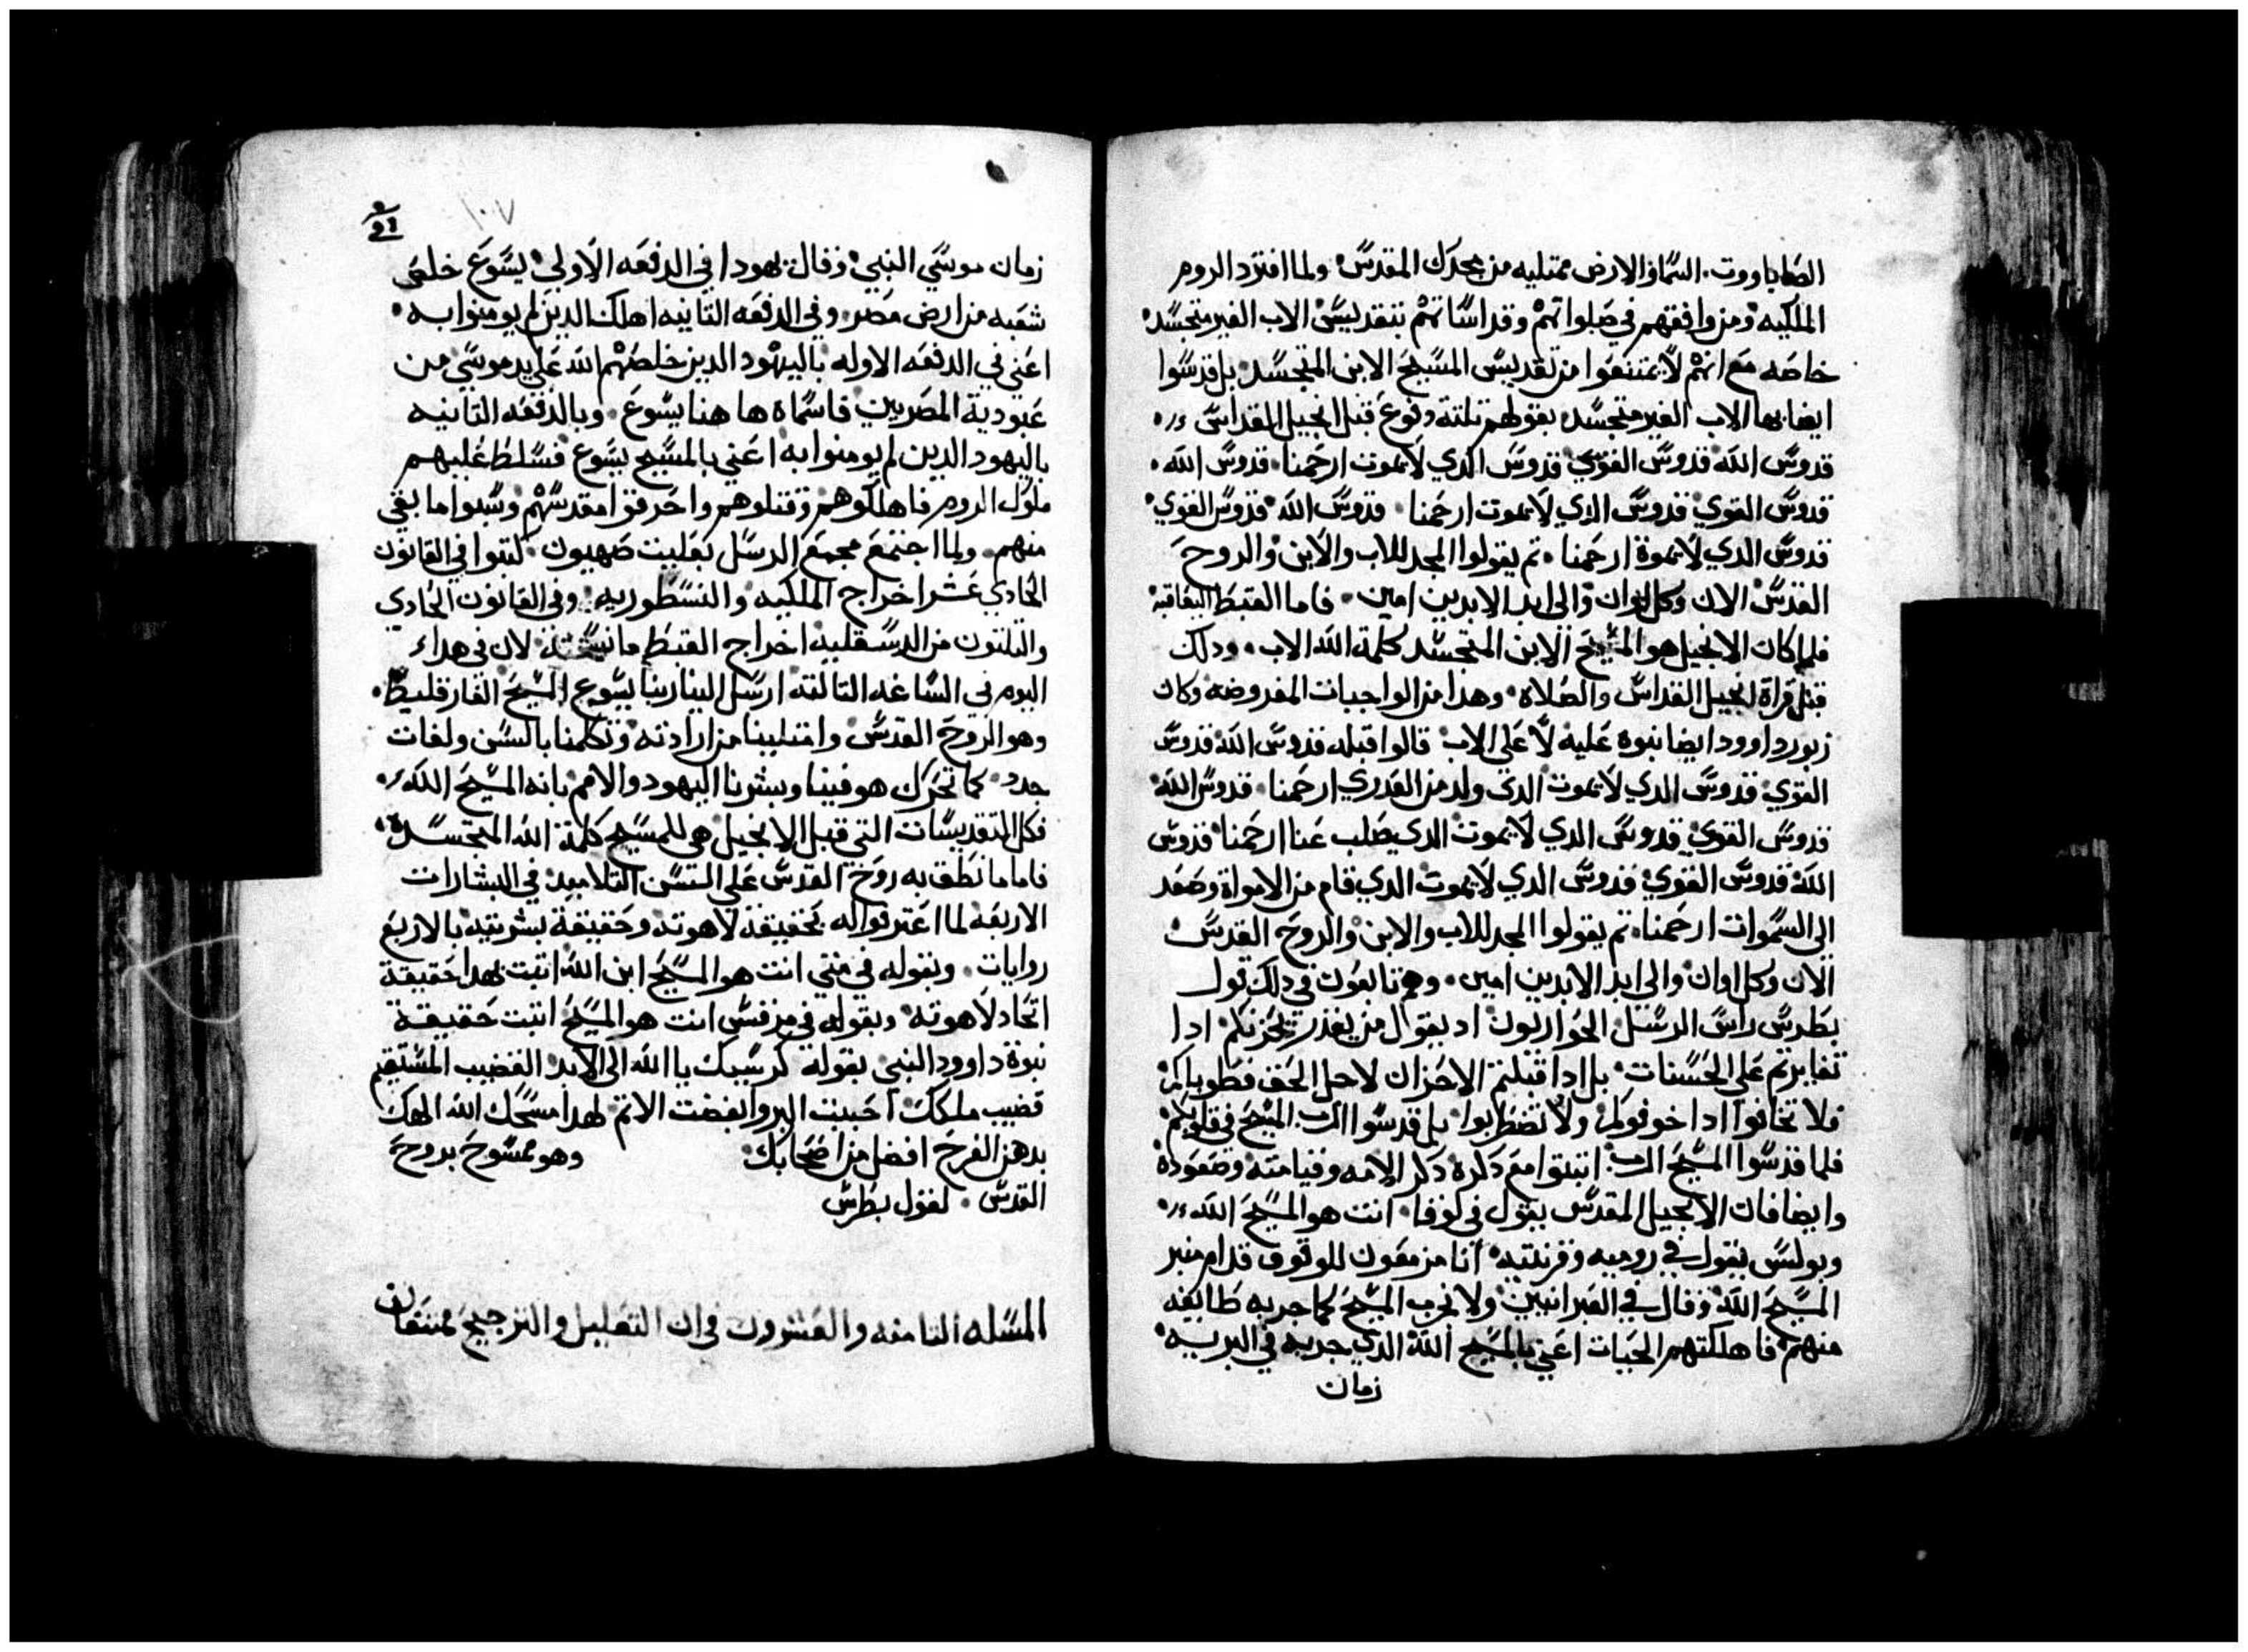 الصاباووت. السما والارض ممتليه من مجدك المقدس. ولما افترد الروم
الملكيه ومن وافقهم في صلواتهم وقداساتهم بتقديس الاب الغير متجسد.
خاصه مع انهم لا يمتنعوا من تقديس المسيح الابن المتجسد بل قدسوا
ايضا بها الاب الغير متجسد بقولهم تلتة دفوع قبل انجيل القداس
قدوس الله قدوس القوي قدوس الدي لا يموت ارحمنا. قدوس الله.
قدوس القوي قدوس الدي لا يموت ارحمنا. قدوس الله قدوس القوي.
قدوس الدي لا يموة ارحمنا. تم يقولوا المجد للاب والابن والروح
القدس الان وكل اوان والى ابد الابدين امين. فاما القبط اليعاقبه
فلما كان الانجيل هو المسيح الابن المتجسد كلمة الله الاب. ودلك
قبل قراة انجيل القداس والصلاه. وهذا من الواجبات المفروضه وكان
زبور داوود ايضا نبوه عليه لا على الاب قالوا قبله قدوس الله قدوس
القوي قدوس الدي لا يموت الدي ولد من العدري ارحمنا. قدوس الله
قدوس القوي قدوس الدي لا يموت الدي صلب عنا ارحمنا قدوس
الله قدوس القوي قدوس الدي لا يموت الدي قام من الامواة وصعد
الى السموات ارحمنا. تم يقولوا المجد للاب والابن والروح القدس
الان وكل اوان والى ابد الابدين امين. وهم تابعون في دلك قول
بطرس راس الرسل الحواريون اد يقول من يقدر يحزنكم ادا
تغايرتم على الحسنات. بل ادا قبلتم الاحزان لاجل الحق فطوباكم
فلا تخافوا ادا خوفوكم ولا تضطربوا بل قدسوا الرب المسيح في قلوبكم
فلما قدسوا المسيح الرب اتبتوا مع دكره دكر الامه وقيامته وصعوده
وايضا فان الانجيل المقدس يقول في لوقا. انت هو المسيح الله
وبولس يقول في روميه وقرنتيه انا مزمعون للوقوف قدام منبر
المسيح الله وقال في العبرانيين ولا نجرب المسيح كما جربه طايفه
منهم فاهلكتهم الحيات اعني بالمسيح الله الدي جربه في البريه
زمان
١٠٧
زمان موسي النبي وقال يهودا في الدفعه الاولي يسوع خلص
شعبه من ارض مصر. وفي الدفعه التانيه اهلك الدين لم يومنوا به.
اعني في الدفعه الاوله باليهود الدين خلصهم الله على يد موسي من
عبودية المصريين فاسماه ها هنا يسوع. وبالدفعه التانيه
باليهود الدين لم يومنوا به اعني بالمسيح يسوع فسلط عليهم
ملوك الروم فاهلكوهم وقتلوهم واحرقوا مقدسهم وسبوا ما بقي
منهم. ولما اجتمع مجمع الرسل بعليت صهيون كتبوا في القانون
الحادي عشر اخراج الملكيه والنسطوريه. وفي القانون الحادي
والتلتون من الدسقليه اخراج القبط ما نسخته لان في هدا
اليوم في الساعه التالته ارسل الينا ربنا يسوع المسيح الفارقليط.
وهو الروح القدس وامتلينا من ارادته وتكلمنا بالسن ولغات
جدد. كما تحرك هو فينا وبشرنا اليهود والامم بانه المسيح الله.
فكل التقديسات التي قبل الانجيل هي للمسيح كلمة الله المتجسده
فاما ما نطق به روح القدس على السن التلاميد في البشارات
الاربعه لما اعترفوا له بحقيقة لاهوته وحقيقة بشريته بالاربع
روايات. وبقوله في متي انت هو المسيح ابن الله اتبت بهدا حقيقة
اتحاد لاهوته وبقوله في مرقس انت هو المسيح اتبت حقيقة
نبوة داوود النبي بقوله كرسيك يا الله الى الابد القضيب المستقيم
قضيب ملكك احببت البر وابغضت الاتم لهدا مسحك الله الهك
بدهن الفرح افضل من اصحابك. وهو ممسوح بروح
القدس. لقول بطرس
المسله التامنه والعشرون في ان التعليل والترجيح ممتنعان